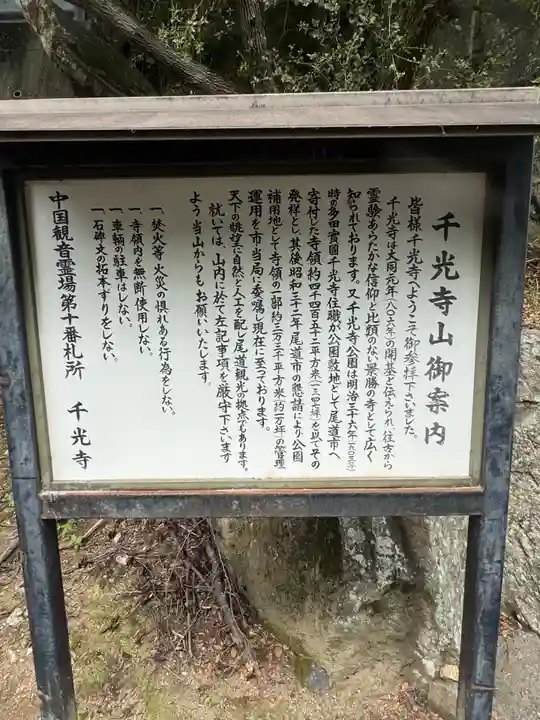 千光寺山御案内
皆様千光寺へようこそ御参拝下さいました。
千光寺は大同元年(八〇六年)の開基と伝えられ、往古から
霊験あらたかな信仰と比類のない景勝の寺として広く
知られております。又千光寺公園は明治三十六年(一九〇三年)
時の多田實圓千光寺住職が公園敷地として尾道市へ
寄付した寺領約四千四百五十二平方米(一三四七坪)を以てその
発祥とし、其後昭和三十二年尾道市の懇請により公園
補用地として寺領の一部約三万三千平方米(約一万坪)の管理
運用を市当局に委嘱し現在に至っております。
天下の眺望で自然と人工を配し尾道観光の拠点でもあります。
就いては、山内に於て左記事項を厳守下さいます
よう当山からもお願いいたします。
一、焚火等 火災の惧れある行為をしない。
一、寺領内を無断使用しない。
一、車輌の駐車はしない。
一、石碑文の拓本ずりをしない。
中国観音霊場第十番札所 千光寺